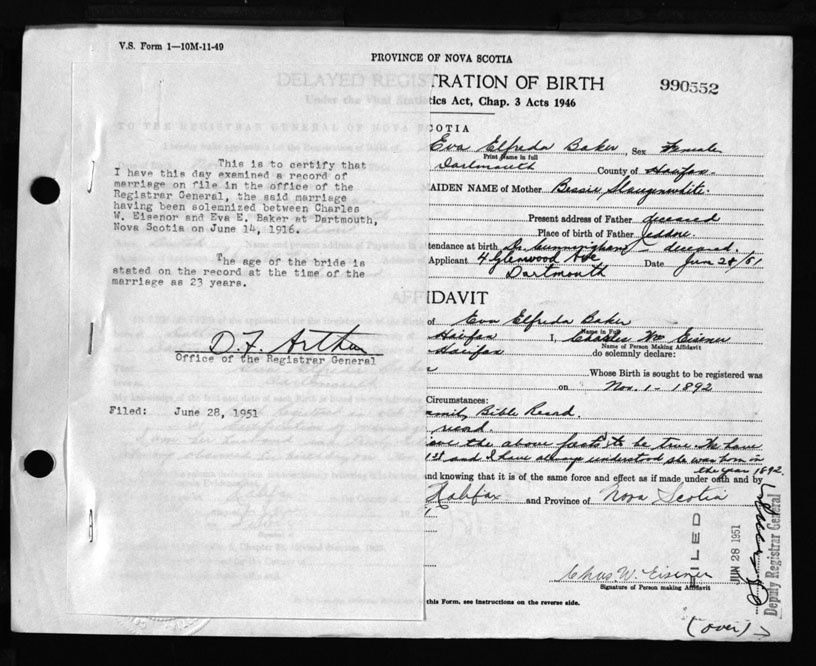 V.S. Form 1—10M-11-49
PROVINCE OF NOVA SCOTIA
DELAYED REGISTRATION OF BIRTH
990552
tics Act, Chap. 3 Acts 1946
COTIA
Eva Elfreda Baker, Sex Female
Print Name in full
Dartmouth County of Halifax.
AIDEN NAME of Mother Bessie Slaugenwhite.
Present address of Father deceased
Place of birth of Father Jeddore.
ttendance at birth Dr. Cunningham - deceased.
Applicant 4 Glenwood Ave Date June 28/51
Dartmouth
This is to certify that
I have this day examined a record of
marriage on file in the office of the
Registrar General, the said marriage
having been solemnized between Charles
W. Eisenor and Eva E. Baker at Dartmouth,
Nova Scotia on June 14, 1916.
The age of the bride is
stated on the record at the time of the
marriage as 23 years.
D. F. Arthur
Office of the Registrar General
Filed: June 28, 1951
FIDAVIT
of Eva Elfreda Baker
Name in Full
Halifax I, Charles Wm Eisener
Name of Person Making Affidavit
Halifax do solemnly declare:
Whose Birth is sought to be registered was
on Nov. 1 - 1892
Circumstances:
amily Bible Record.
record.
the above facts to be true. We have
1st and I have always understood she was born in
the year 1892.
nd knowing that it is of the same force and effect as if made under oath and by
Halifax and Province of Nova Scotia
FILED
JUN 28 1951
Deputy Registrar General
Chas. W. Eisener
Signature of Person making Affidavit
this Form, see Instructions on the reverse side.
(over)